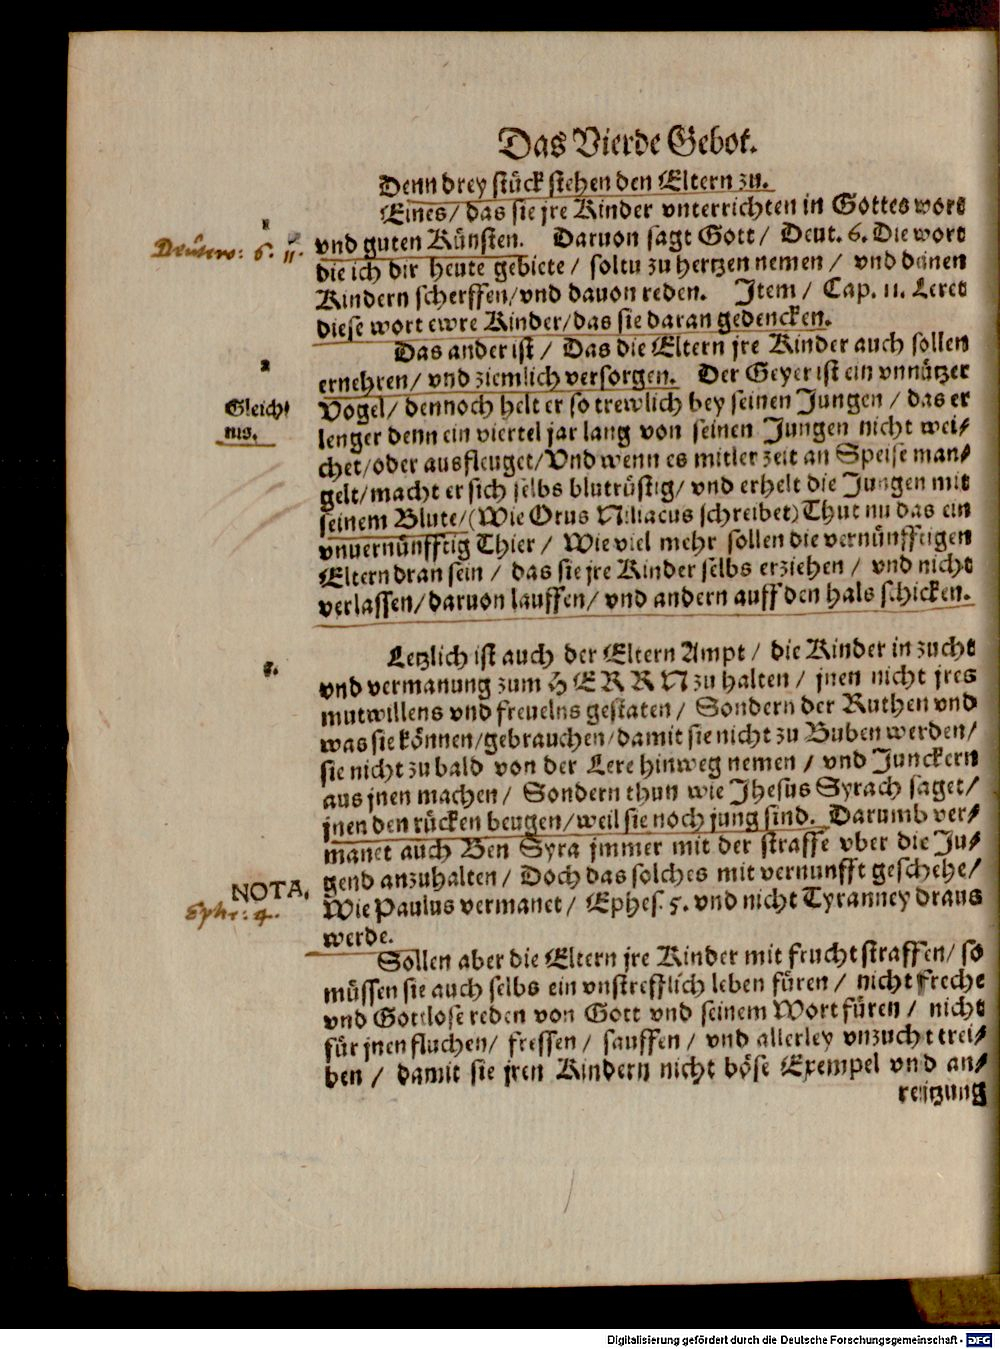 Das Vierde Gebot.
Denn drey stück stehen den Eltern zu.
1
Eines/ das sie jre Kinder vnterrichten in Gottes wort
Deutero: 6. 11.
vnd guten Künsten. Daruon sagt Gott/ Deut. 6. Die wort
die ich dir heute gebiete/ soltu zu hertzen nemen/ vnd deinen
Kindern scherffen/vnd dauon reden. Item/ Cap. 11. Leret
diese wort ewre Kinder/das sie daran gedencken.
2
Das ander ist/ Das die Eltern jre Kinder auch sollen
ernehren/ vnd ziemlich versorgen. Der Geyer ist ein vnnützer
Gleich⸗
nis.
Vogel/ dennoch helt er so trewlich bey seinen Jungen/ das er
lenger denn ein viertel jar lang von seinen Jungen nicht wei⸗
chet/oder ausfleuget/Vnd wenn es mitler zeit an Speise man⸗
gelt/macht er sich selbs blutrüstig/ vnd erhelt die Jungen mit
seinem Blute/(Wie Orus Niliacus schreibet) Thut nu das ein
vnuernünfftig Thier/ Wie viel mehr sollen die vernünfftigen
Eltern dran sein/ das sie jre Kinder selbs erziehen/ vnd nicht
verlassen/daruon lauffen/ vnd andern auff den hals schicken.
3.
Letzlich ist auch der Eltern Ampt/ die Kinder in zucht
vnd vermanung zum HERRN zu halten/ jnen nicht jres
mutwillens vnd freuelns gestaten/ Sondern der Ruthen vnd
was sie können/gebrauchen/damit sie nicht zu Buben werden/
sie nicht zu bald von der Lere hinweg nemen/ vnd Junckern
aus jnen machen/ Sondern thun wie Jhesus Syrach saget/
jnen den rücken beugen/weil sie noch jung sind. Darumb ver⸗
manet auch Ben Syra jmmer mit der straffe vber die Ju⸗
gend anzuhalten/ Doch das solches mit vernunfft geschehe/
NOTA.
Ephe: 4.
Wie Paulus vermanet/ Ephes. 5. vnd nicht Tyranney draus
werde.
Sollen aber die Eltern jre Kinder mit frucht straffen/ so
müssen sie auch selbs ein vnstrefflich leben füren/ nicht freche
vnd Gottlose reden von Gott vnd seinem Wort füren/ nicht
für jnen fluchen/ fressen/ sauffen/ vnd allerley vnzucht trei⸗
ben/ damit sie jren Kindern nicht böse Exempel vnd an⸗
reitzung
Digitalisierung gefördert durch die Deutsche Forschungsgemeinschaft - DFG